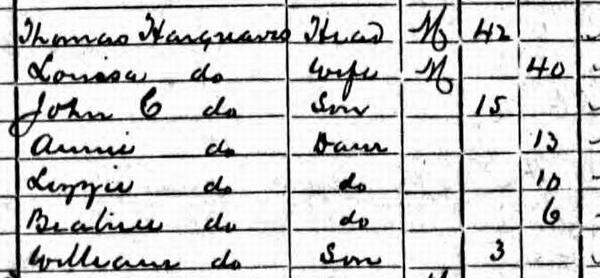 Thomas Hargreaves Head M 42
Louisa do Wife M 40
John C do Son 15
Annie do Daur 13
Lizzie do do 10
Beatrice do do 6
William do Son 3